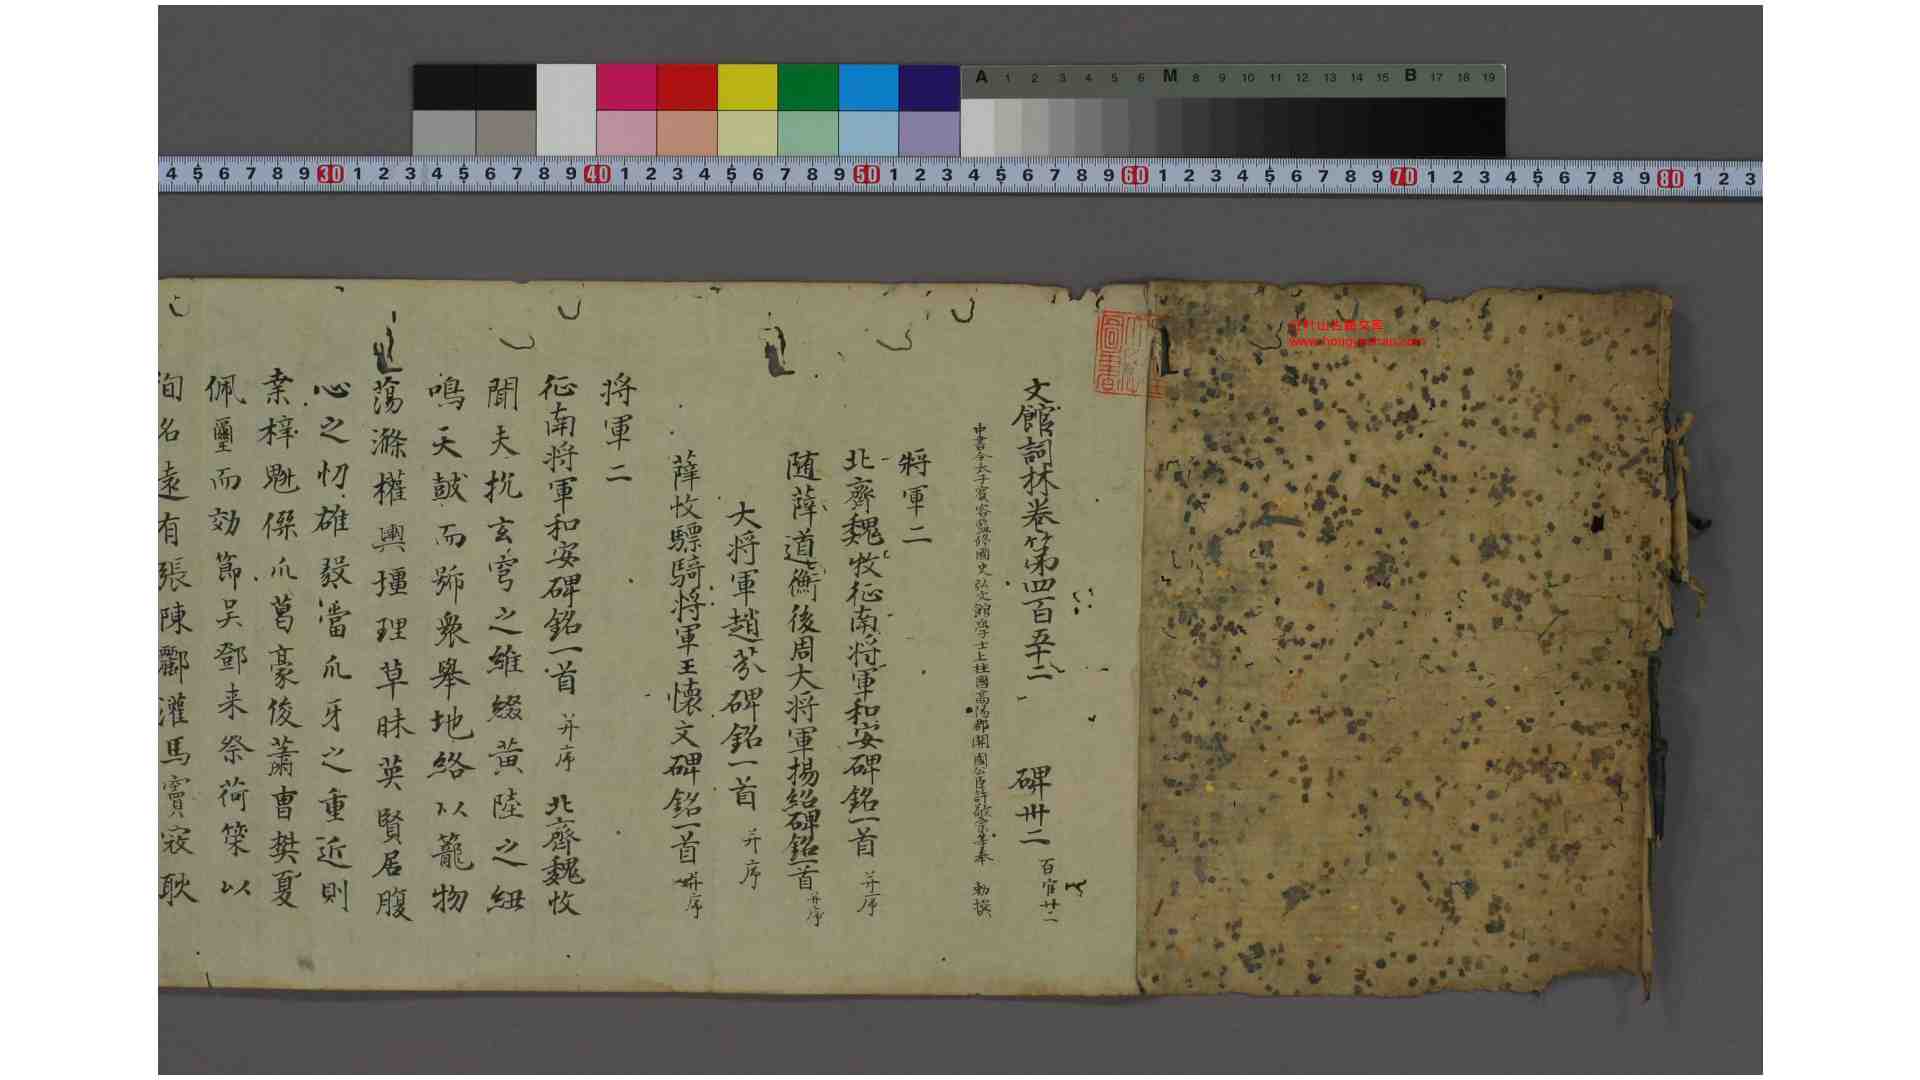 文館詞林卷第四百五十二 碑卅二 百官廿二
中書令太子賓客監修國史弘文館學士上柱國高陽郡開國公臣許敬宗等奉 勅撰
將軍二
北齊魏收征南將軍和安碑銘一首 并序
随薛道衡後周大將軍楊紹碑銘一首 并序
大將軍趙芬碑銘一首 并序
薛收驃騎將軍王懷文碑銘一首 并序
將軍二
征南將軍和安碑銘一首 并序 北齊魏收
聞夫抗玄穹之維綴黃陸之紐
鳴天鼓而號衆舉地絡以籠物
蕩滌權輿壃理草昧英賢居腹
心之切雄毅當爪牙之重近則
桒梓魁傑爪葛豪俊蕭曹樊夏
佩璽而効節吴鄧来祭荷榮以
洵名遠有張陳酈灌馬竇寇耿
A 1 2 3 4 5 6 M 8 9 10 11 12 13 14 15 B 17 18 19
4 5 6 7 8 9 30 1 2 3 4 5 6 7 8 9 40 1 2 3 4 5 6 7 8 9 50 1 2 3 4 5 6 7 8 9 60 1 2 3 4 5 6 7 8 9 70 1 2 3 4 5 6 7 8 9 80 1 2 3
www.hongyeshan.com